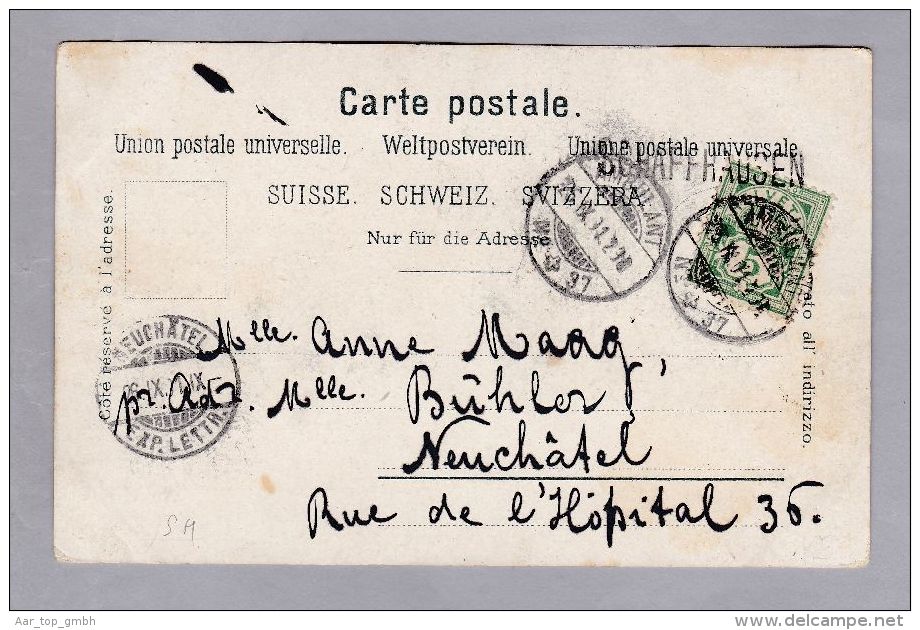 Carte postale.
Union postale universelle. Weltpostverein. Unione postale universale.
SCHAFFHAUSEN
SUISSE. SCHWEIZ. SVIZZERA.
Nur für die Adresse
Côté réservé à l'adresse.
all' indirizzo.
NEUCHÂTEL
IX
EXP. LETTR.
AMBULANT
Nº 37
IX
Nº 37
Mlle. Anne Maag,
pr. Adr. Mlle. Bühler
Neuchâtel
Rue de l'Hôpital 36.
SH
Aar_top_gmbh
delcampe.net